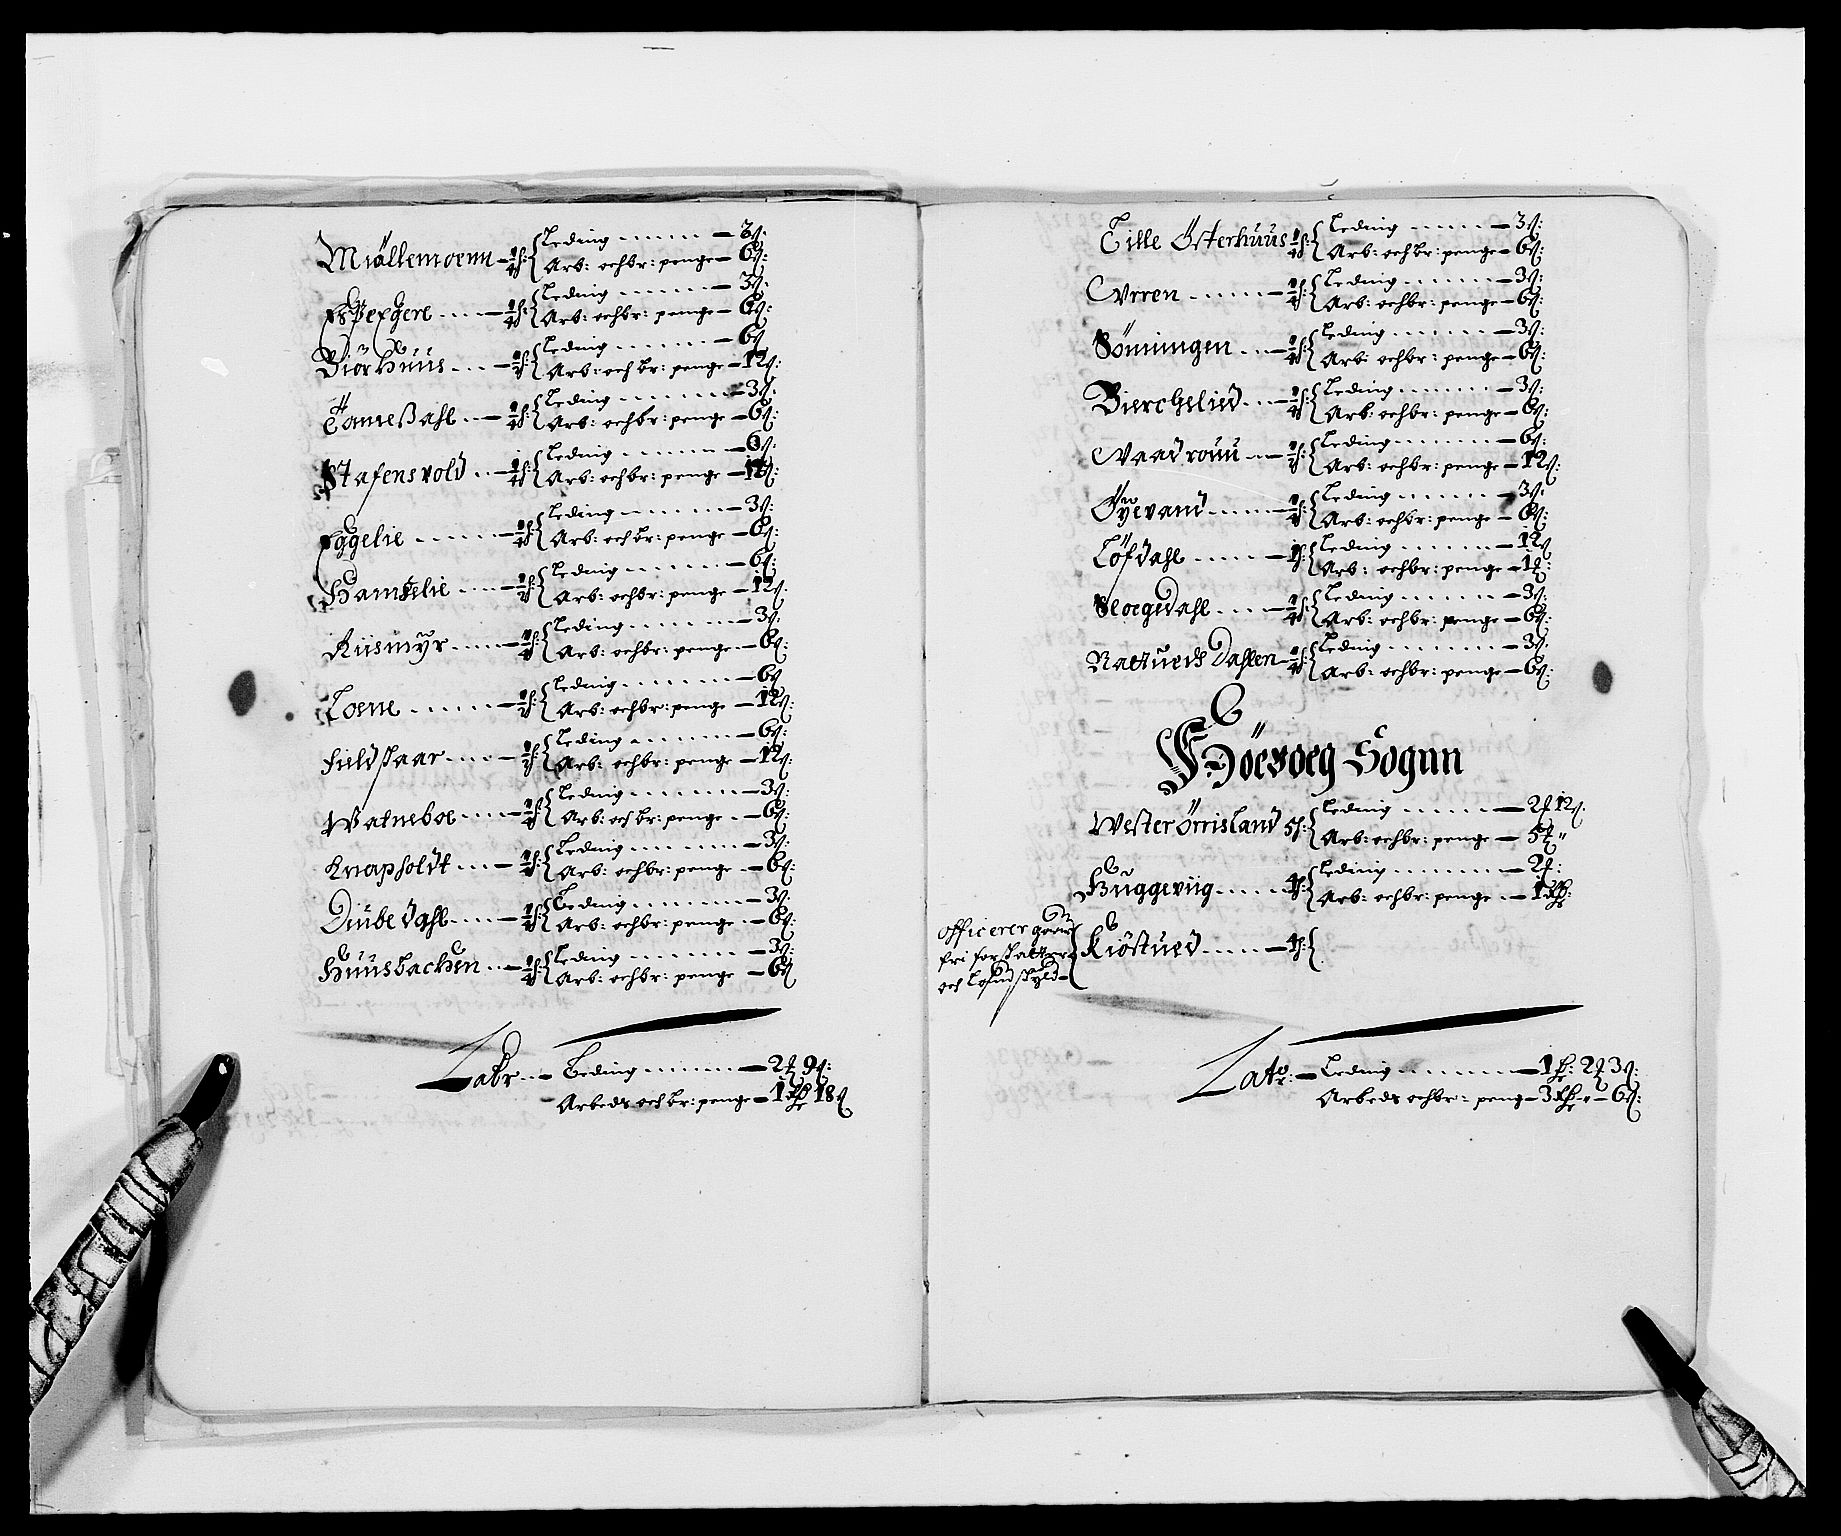 Miöllemoenn - ¼ s: { Leding - 3 s:
Arb: och br: penge - 6 s:
Espegere - ¼ s: { Leding - 3 s:
Arb: och br: penge - 6 s:
Biörhuus - ½ s: { Leding - 6 s
Arb: och br: penge - 12 s:
Tameßahl - ¼ s: { Leding - 3 s:
Arb: och br: penge - 6 s:
Stafensvold - ½ s: { Leding - 6 s:
Arb: och br: penge - 12 s:
Eggelie - ¼ s: { Leding - 3 s:
Arb: och br: penge - 6 s:
Hamselie - ½ s: { Leding - 6 s:
Arb: och br: penge - 12 s:
Riismÿr - ¼ s: { Leding - 3 s:
Arb: och br: penge - 6 s:
Loene - ½ s: { Leding - 6 s
Arb: och br: penge - 12 s:
Fieldskaar - ½ s: { Leding - 6 s:
Arb: och br: penge - 12 s:
Watneboe - ¼ s: { Leding - 3 s:
Arb: och br: penge - 6 s:
Knapholdt - ¼ s: { Leding - 3 s:
Arb: och br: penge - 6 s:
Diubedahl - ¼ s: { Leding - 3 s:
Arb: och br: penge - 6 s:
Huusbachen - ¼ s: { Leding - 3 s:
Arb: och br: penge - 6 s
Latr - Leding - 2 9 s:
Arbeds och br: penge - 1 18 s
Lille Österhuus ¼ s: { Leding - 3 s:
Arb: och br: penge - 6 s:
Urren - ¼ s: { Leding - 3 s:
Arb: och br: penge - 6 s:
Sönningen - ¼ s: { Leding - 3 s:
Arb: och br: penge - 6 s:
Bierchelied - ¼ s: { Leding - 3 s:
Arb: och br: penge - 6 s:
Waadrouu - ½ s: { Leding - 6 s:
Arb: och br: penge - 12 s:
Öÿevand - ¼ s: { Leding - 3 s:
Arb: och br: penge - 6 s:
Löfdahl - 1 s: { Leding - 12 s
Arb: och br: penge - 1
Slogedahl - ¼ s: { Leding - 3 s:
Arb: och br: penge - 6 s:
Dahlen - ¼ s: { Leding - 3 s:
Arb: och br: penge - 6 s:
Höevoeg Sognn
Wester Örrisland 5 s: { Leding - 2 12 s:
Arb: och br: penge - 5 "
Huggeviig - 4 s: { Leding - 2
Arb: och br: penge - 1
officerer gaar
fri for
och
Kiöstued - 4 s: {
Latr: - Leding - 1 2 3 s:
Arbeds och br: peng - 3 " - 6 s: